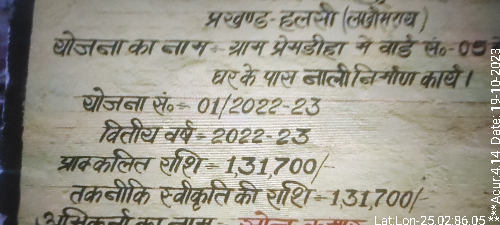 प्रखण्ड-हलसी (लखीसराय)
योजना का नाम - ग्राम प्रेमडीहा में वार्ड सं०-05
घर के पास नाली निर्माण कार्य।
योजना सं०- 01/2022-23
वितीय वर्ष - 2022-23
प्राक्कलित राशि - 1,31,700/-
तकनीकि स्वीकृति की राशि - 1,31,700/-
का नाम
Lat,Lon-25.02,86.05
Date: 19-10-2023